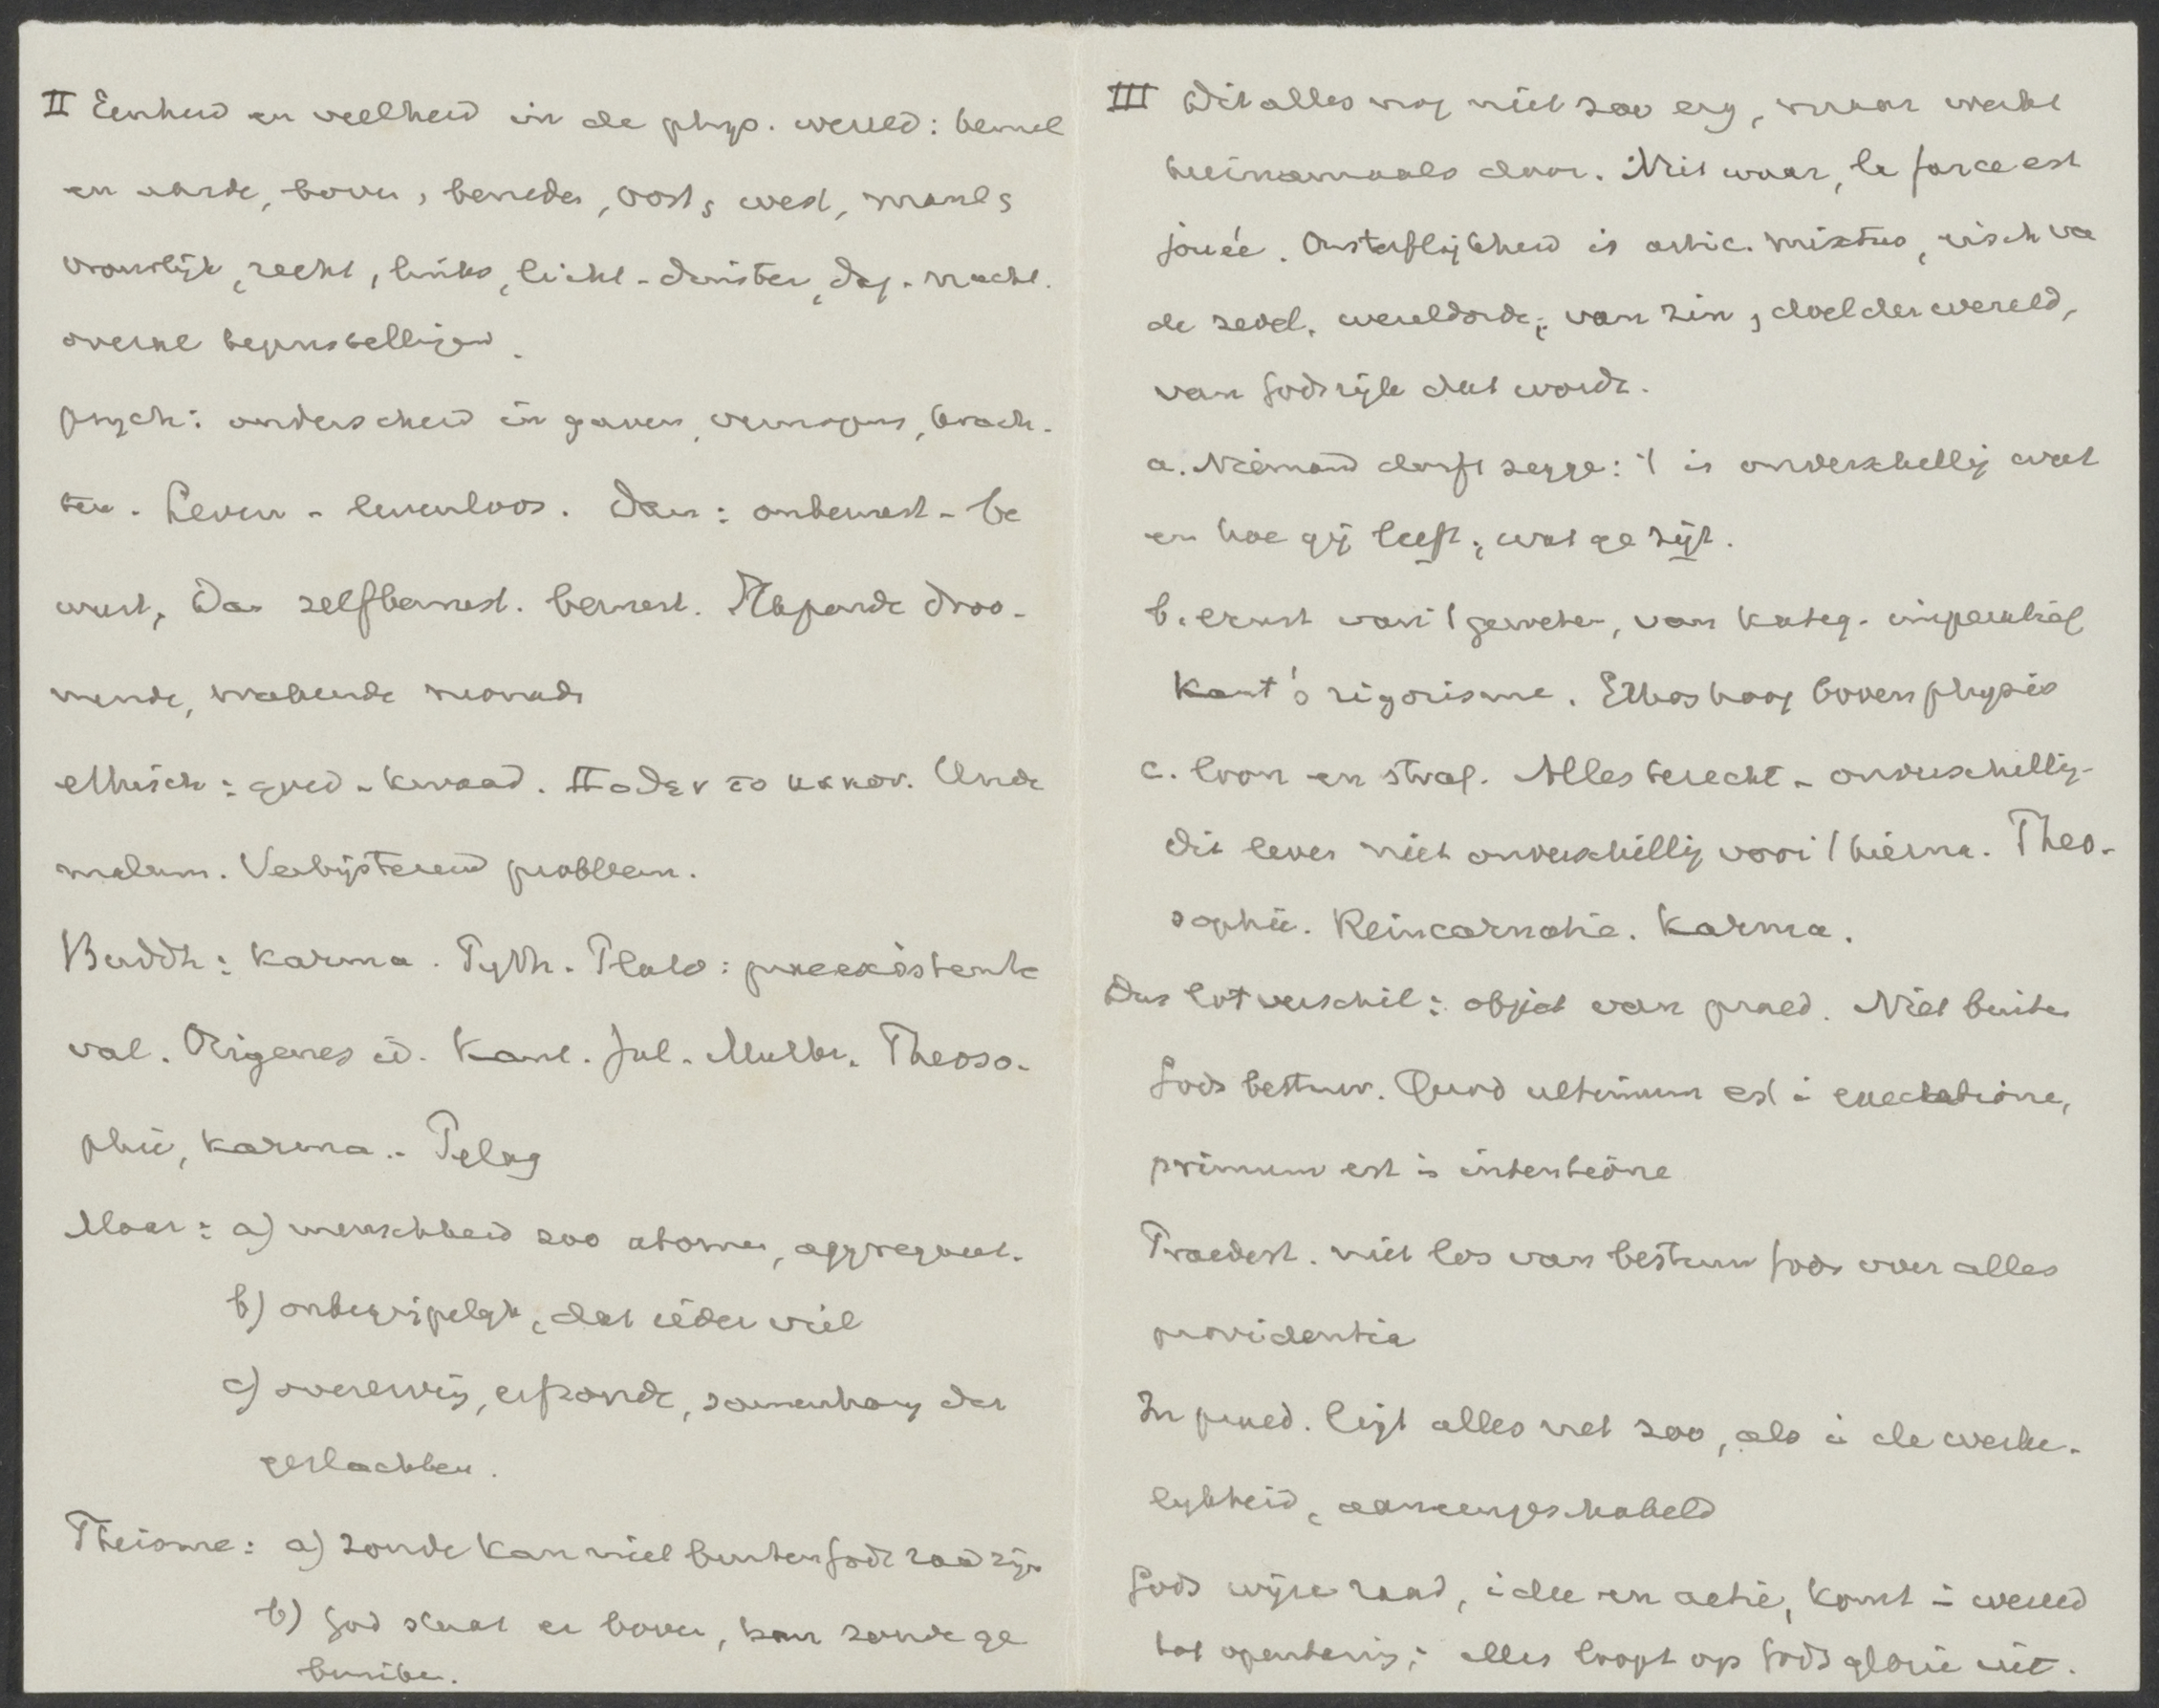 II Eenheid en veelheid in de phys. wereld: hemel
en aarde, boven, beneden, oost, west, manl,
vrouwlijk, recht, links, licht - duister, dag - nacht.
overal tegenstellingen.
psych: onderscheid in gaven, vermogens, krach-
ten. Leven - levenloos. Dan: onbewust - be
wust, Dan zelfbewust. bewust. Slapende droo-
mende, wakende monade
ethisch: goed - kwaad. Ποθεν το κακον. Unde
malum. Verbijsterend probleem.
Buddh: Karma. Pyth. Plato: praeexistente
val. Origenes id. Kant. Jul. Muller. Theoso-
phie, karma.- Pelag
Maar: a) menschheid zoo atomen, aggregaat.
b) onbegrijpelijk, dat ieder viel
c) overerving, erfzonde, samenhang der
geslachten.
Theisme: a) zonde kan niet buiten Gods raad zijn
b) God staat er boven, kan zonde ge
bruiken.
III Dit alles nog niet zoo erg, maar werkt
hiernamaals door. Niet waar, la farce est
jouée. Onsterflijkheid is artic. mixtus, eisch va
de zedel. wereldorde; van zin, doel der wereld,
van Godsrijk dat wordt.
a. Niemand durft zegge: 't is onverschillig wat
en hoe gij leeft, wat ge zijt.
b. ernst van 't geweten, van kateg. imperatief
Kant's rigorisme. Ethos hoog boven physis
c. loon en straf. Alles terecht - onverschillig-
dit leven niet onverschillig voor 't hierna. Theo-
sophie. Reincarnatie. Karma.
Dus lotverschil: object van praed. Niet buiten
Gods bestuur. Quod ultimum est i executione,
primum est i intentione
Praedest. niet los van bestuur Gods over alles
providentia
In praed. ligt alles net zoo, als i de werke-
lijkheid, aaneengeschakeld
Gods wijze raad, idee en actie, komt i wereld
tot openbaring; alles loopt op Gods glorie uit.